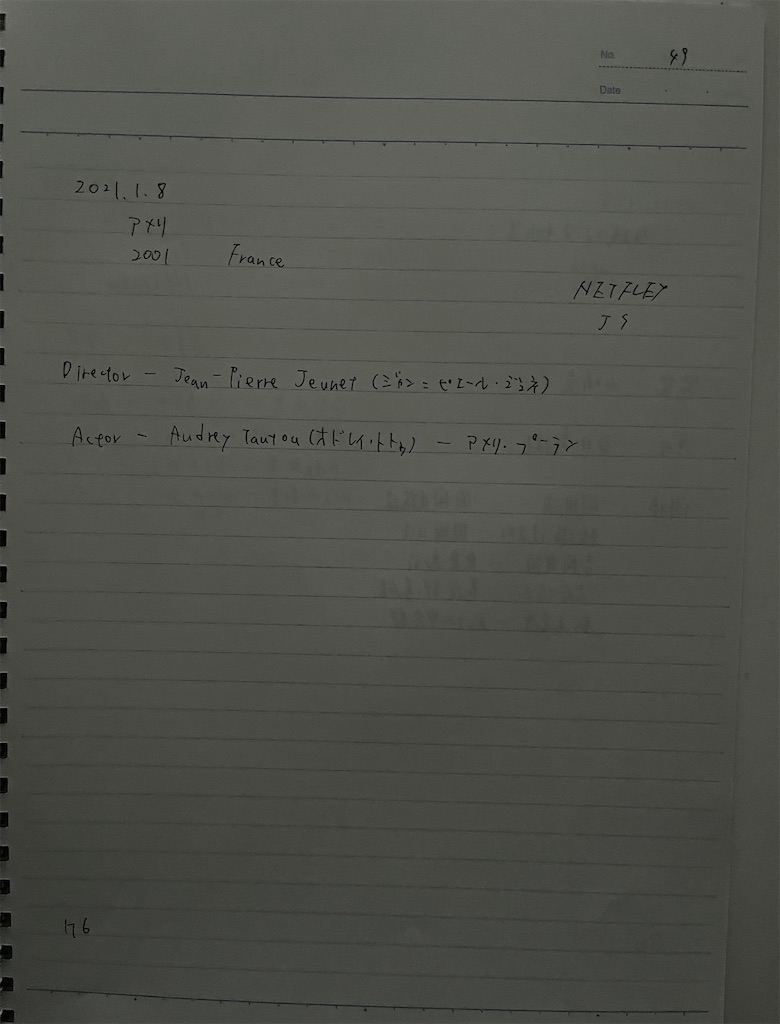 No. 49
Date
2021.1.8
アメリ
2001 France
NETFLEX
J S
Director - Jean-Pierre Jeunet (ジャン=ピエール・ジュネ)
Actor - Audrey Tautou (オドレイ・トトゥ) - アメリ・プーラン
176